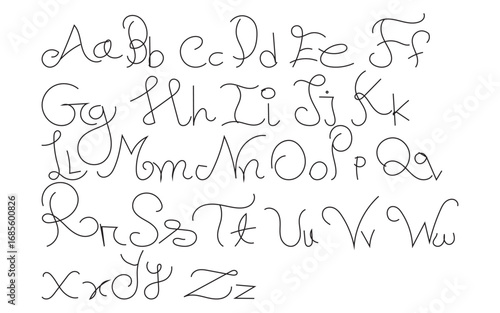 Aa Bb Cc Dd Ee Ff
Gg Hh Ii Jj Kk
Ll Mm Nn Oo Pp Qq
Rr Ss Tt Uu Vv Ww
Xx Yy Zz
Adobe Stock | #1685600826